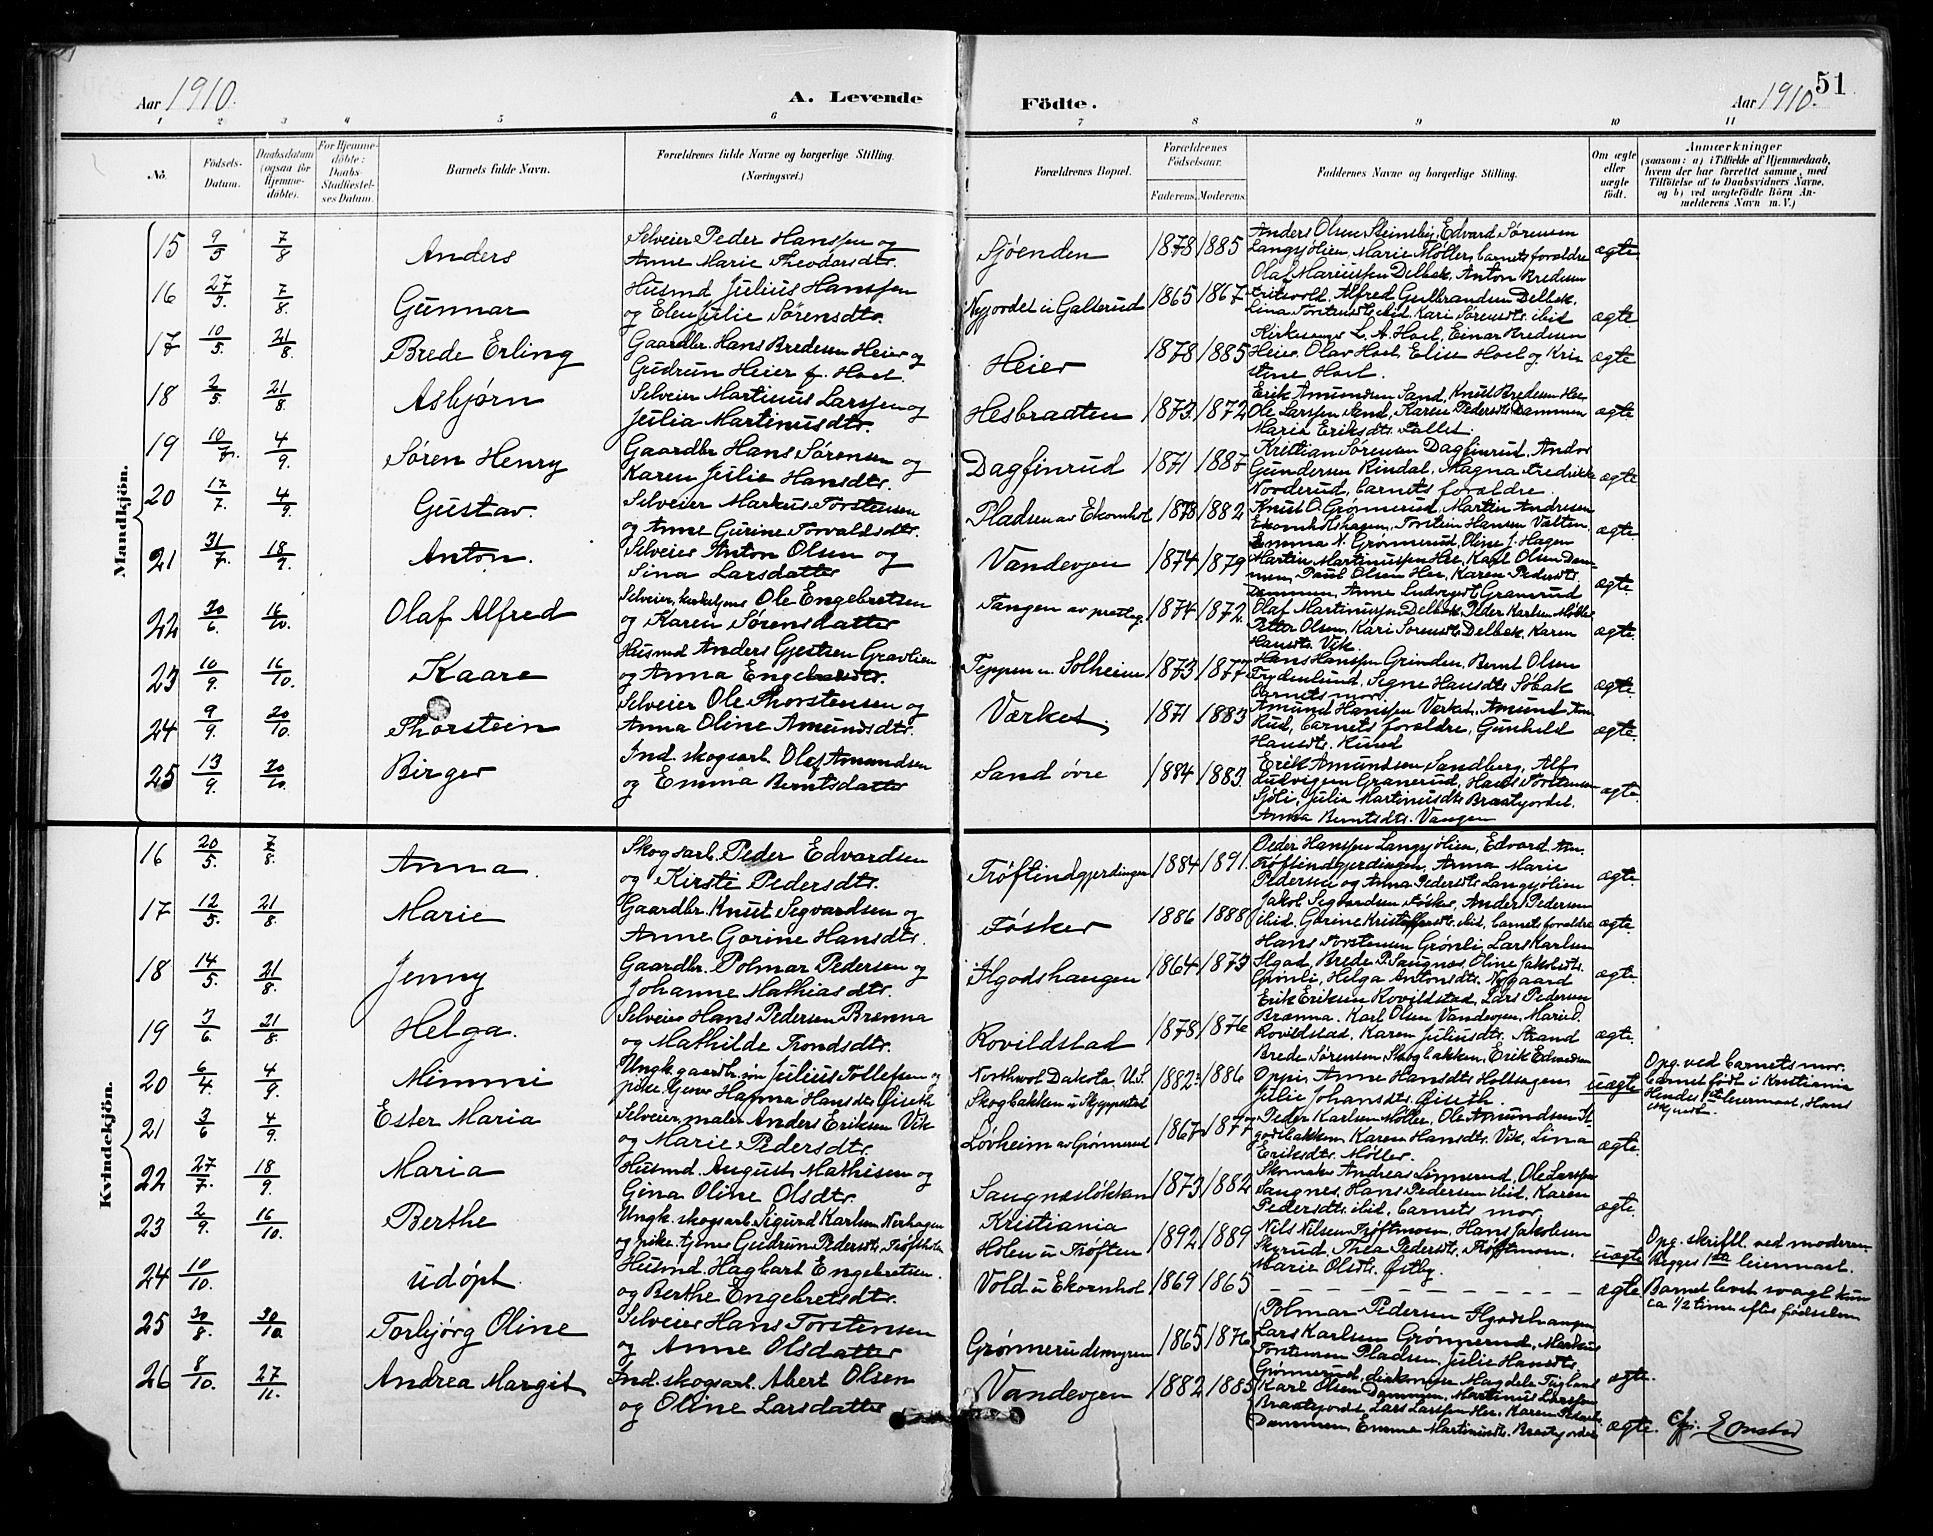 Aar 1910. A. Levende
Födte. Aar 1910. 51
1 2 3 4 5 6 7 8 9 10 11
No. Födsels-Datum. Daabsdatum (ogsaa for Hjemmedöbte). For Hjemmedöbte: Daabs-Stadfæstelses Datum. Barnets fulde Navn. Forældrenes fulde Navne og borgerlige Stilling. (Næringsvei.) Forældrenes Bopæl. Forældrenes Födselsaar. Faderens. Moderens. Faddernes Navne og borgerlige Stilling. Om ægte eller uægte födt. Anmærkninger (saasom: a) i Tilfælde af Hjemmedaab, hvem der har forrettet samme, med Tilföielse af to Daabsvidners Navne, og b) ved uægtefödte Börn Anmelderens Navn m. V.)
Mandkjön.
15 9/5 7/8 Anders Selveier Peder Hanssen og Anne Marie Theodorsdtr. Sjøenden 1878 1885 Anders Olsen Steinsby, Edvard Sørensen Langsjølien, Marie Møller, barnets forældre ægte
16 27/5 7/8 Gunnar Husmd Julius Hanssen og Elen Julie Sørensdtr. Nyjordet u Galterud 1865 1867 Olaf Mariussen Delbek, Anton Bredesen Alfred Gulbrandsen Delbek, Lina Torstensdtr. ibid, Kari Sørensdtr. ibid ægte
17 10/5 21/8 Brede Erling Gaardbr. Hans Bredesen Heier og Gudrun Heier f. Hoel Heier 1878 1885 Kirkesanger L. A. Hoel, Einar Bredesen Heier, Olav Hoel, Elise Hoel og Kristine Hoel. ægte
18 2/5 21/8 Asbjørn Selveier Martinus Larssen og Julia Martinusdtr. Hesbraaten 1873 1872 Erik Amundsen Sand, Knut Bredesen Her Ole Larssen Sand, Karen Pedersdtr. Dammen Marie Eriksdtr. Fallet. ægte
19 10/7 4/9 Søren Henry Gaardbr Hans Sørensen og Karen Julie Hansdtr. Dagfinrud 1871 1887 Kristian Sørensen Dagfinrud, Andor Gundersen Rindal, Magna Fredrikke Norderud, barnets forældre. ægte
20 17/7 4/9 Gustav. Selveier Markus Torstensen og Anne Gurine Torvaldsdtr. Pladsen av Ekornhol 1878 1882 Knut O. Grønnerud, Martin Andresen Ekornholshagen, Torstein Hansen Valten Emma N. Grønnerud, Oline J. Hagen ægte
21 31/7 18/9 Anton. Selveier Anton Olsen og Sina Larsdatter Vandevjen 1874 1879 Martin Martinussen Her, Karl Olsen Dammen, Paul Olsen Her, Karen Pedersdtr. Dammen, Anne Ludvigsdtr. Granerud ægte
22 30/6 16/10 Olaf Alfred Selveier, kirketjener Ole Engebretsen og Karen Sørensdatter Tangen av presteg. 1874 1872 Olaf Martinussen Delbek, Peder Karlsen Møller Petter Olsen, Kari Sørensdtr. Delbek, Karen Hansdtr. Vik. ægte.
23 10/9 16/10 Kaare Husmd Anders Gjestsen Gravlien og Anna Engebretsdtr. Teppen u Solheim 1873 1877 Hans Hanssen Grinden, Bernt Olsen Frydenlund, Signe Hansdtr. Søbak barnets mor. ægte.
24 9/9 20/10 Thorstein Selveier Ole Thorstensen og Anna Oline Amundsdtr. Værket 1871 1883 Amund Hanssen Værket, Amund Rud, barnets forældre, Gunhild Hansdtr. Rund ægte.
25 13/9 30/10 Birger Ind. skogsarb. Olaf Amundsen og Emma Berntsdatter Sand øvre 1884 1883. Erik Amundsen Sandberg, Alf Ludvigsen Granerud, Hans Torstensen Sjøli, Julie Martinusdtr. Braatejordet. Anna Berntsdtr. Vangen ægte.
Kvindekjön.
16 20/5 7/8 Anna Skogsarb. Peder Edvardsen og Kirsti Pedersdtr. Trøftindgjerdingen 1884 1891. Peder Hanssen Langsjølien, Edvard Trøftindgjerdingen, Anna Marie Pedersen og Anna Pedersdtr. Langsjølien ægte.
17 12/5 21/8 Marie Gaardbr. Knut Segvardsen og Anne Gorine Hansdtr. Føsker 1886 1888 Jakob Segvardsen Føsker, Anders Pedersen ibid. Gorine Kristoffersdtr. ibid, barnets forældre ægte.
18 14/5 21/8 Jenny Gaardbr. Polmar Pedersen og Johanne Mathiasdtr. Ilgodshaugen 1864 1873 Hans Torstensen Grønli, Lars Karlsen Ilgod, Brede P. Saugnæs, Oline Jakobsdtr. Grønli, Helga Antonsdtr. Nygaard ægte.
19 7/6 21/8 Helga. Selveier Hans Pedersen Brænna og Mathilde Trondsdtr. Rovildstad 1878 1876 Erik Eriksen Rovildstad, Lars Pedersen Brænna, Karl Olsen Vandevjen, Marie O. Rovildstad, Karen Juliusdtr. Strand ægte.
20 6/4 4/9 Mimmi Ungk. gaardbr. søn Julius Tollefsen og pike tjener Hafma Hansdtr. Giseth Northwol Dakota, U.S. Skogbakken u Skyppestad 1882 1886 Brede Sørensen Skogbakken, Erik Edvardsen Oppi, Anne Hansdtr. Holthagen Julie Johansdtr. Giseth. uægte Opg. ved barnets mor. barnet født i Kristiania Hendes 1ste leiermaal, Hans
21 3/6 4/9 Ester Maria Selveier, maler Anders Eriksen Vik og Marie Pedersdtr. Løvheim av Grønnerud 1867 1877 Peder Karlsen Møller, Ole Amundsen Karen Hansdtr. Vik, Lina Eriksdtr. Møller. ægte
22 27/7 18/9 Maria Husmd. August Mathisen og Gina Oline Olsdtr. Saugnæsløkken 1873 1882 Skomaker Andreas Linnerud, Ole Larssen Saugnes, Hans Pedersen ibid, Karen Pedersdtr. ibid, barnets mor. ægte.
23 2/9 16/10 Berthe Ungk. skogsarb. Sigurd Karlsen Nerhagen og pike tjener Gudrun Pedersdtr. Trøftholen Kristiania Holen u Trøften 1892 1889 Nils Nilsen Trøftmoen, Hans Jakobsen Skyrud, Thea Pedersdtr. Trøftmoen, Marie Olsdtr. Østby. uægte Opg. skriftl. ved moderen. Begges 1ste leiermaal.
24 10/10 udøpt. Husmd. Hagbart Engebretsen. og Berthe Engebretsdtr. Vold u Ekornhol 1869 1865 ægte. Barnet levet svagt kun ca 1/2 time efter fødselen
25 30/8 30/10 Torbjørg Oline Selveier Hans Torstensen og Anne Olsdatter Grønnerudsmyren 1865 1876 Polmar Pedersen Ilgodshaugen Lars Karlsen Grønnerud, Markus Torstensen Pladsen, Julie Hansdtr. Grønnerud, Magdele Tigland ægte.
26 8/10 27/11. Andrea Margit Ind. skogsarb. Abert Olsen og Oline Larsdatter Vandevjen 1882 1885 Karl Olsen Dammen, Martinus Larssen Braatejordet, Lars Larssen Her, Karen Pedersdtr. Dammen, Emma Martinusdtr. Braatejordet ægte.